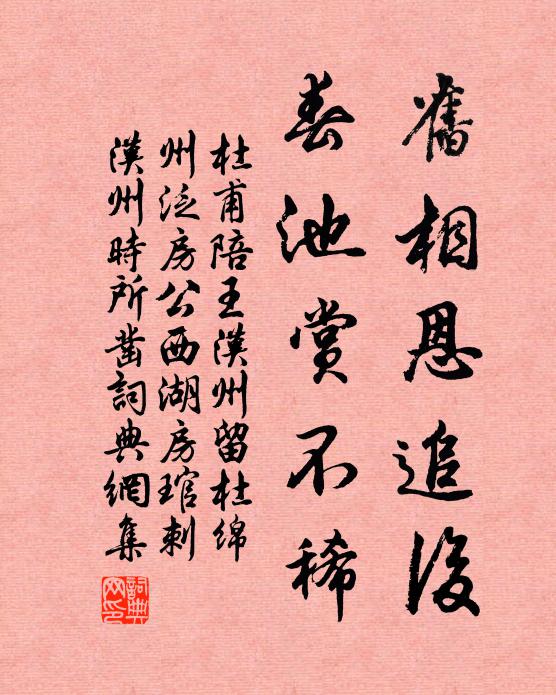 舊相恩追後
春池賞不稀
杜甫陪王漢州留杜綿
州泛房公西湖房琯刺
漢州時所鑿詞典網集
詞典網印